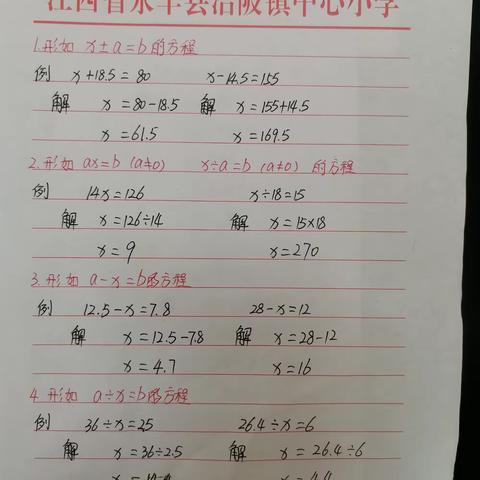 江西省永丰县沿陂镇中心小学
1.形如 x±a=b的方程
例 x+18.5=80 x-14.5=155
解 x=80-18.5 解 x=155+14.5
x=61.5 x=169.5
2.形如 ax=b (a≠0) x÷a=b (a≠0) 的方程
例 14x=126 x÷18=15
解 x=126÷14 解 x=15×18
x=9 x=270
3.形如 a-x=b的方程
例 12.5-x=7.8 28-x=12
解 x=12.5-7.8 解 x=28-12
x=4.7 x=16
4.形如 a÷x=b的方程
例 36÷x=25 26.4÷x=6
解 x=36÷2.5 解 x=26.4÷6
x=14.4 x=4.4